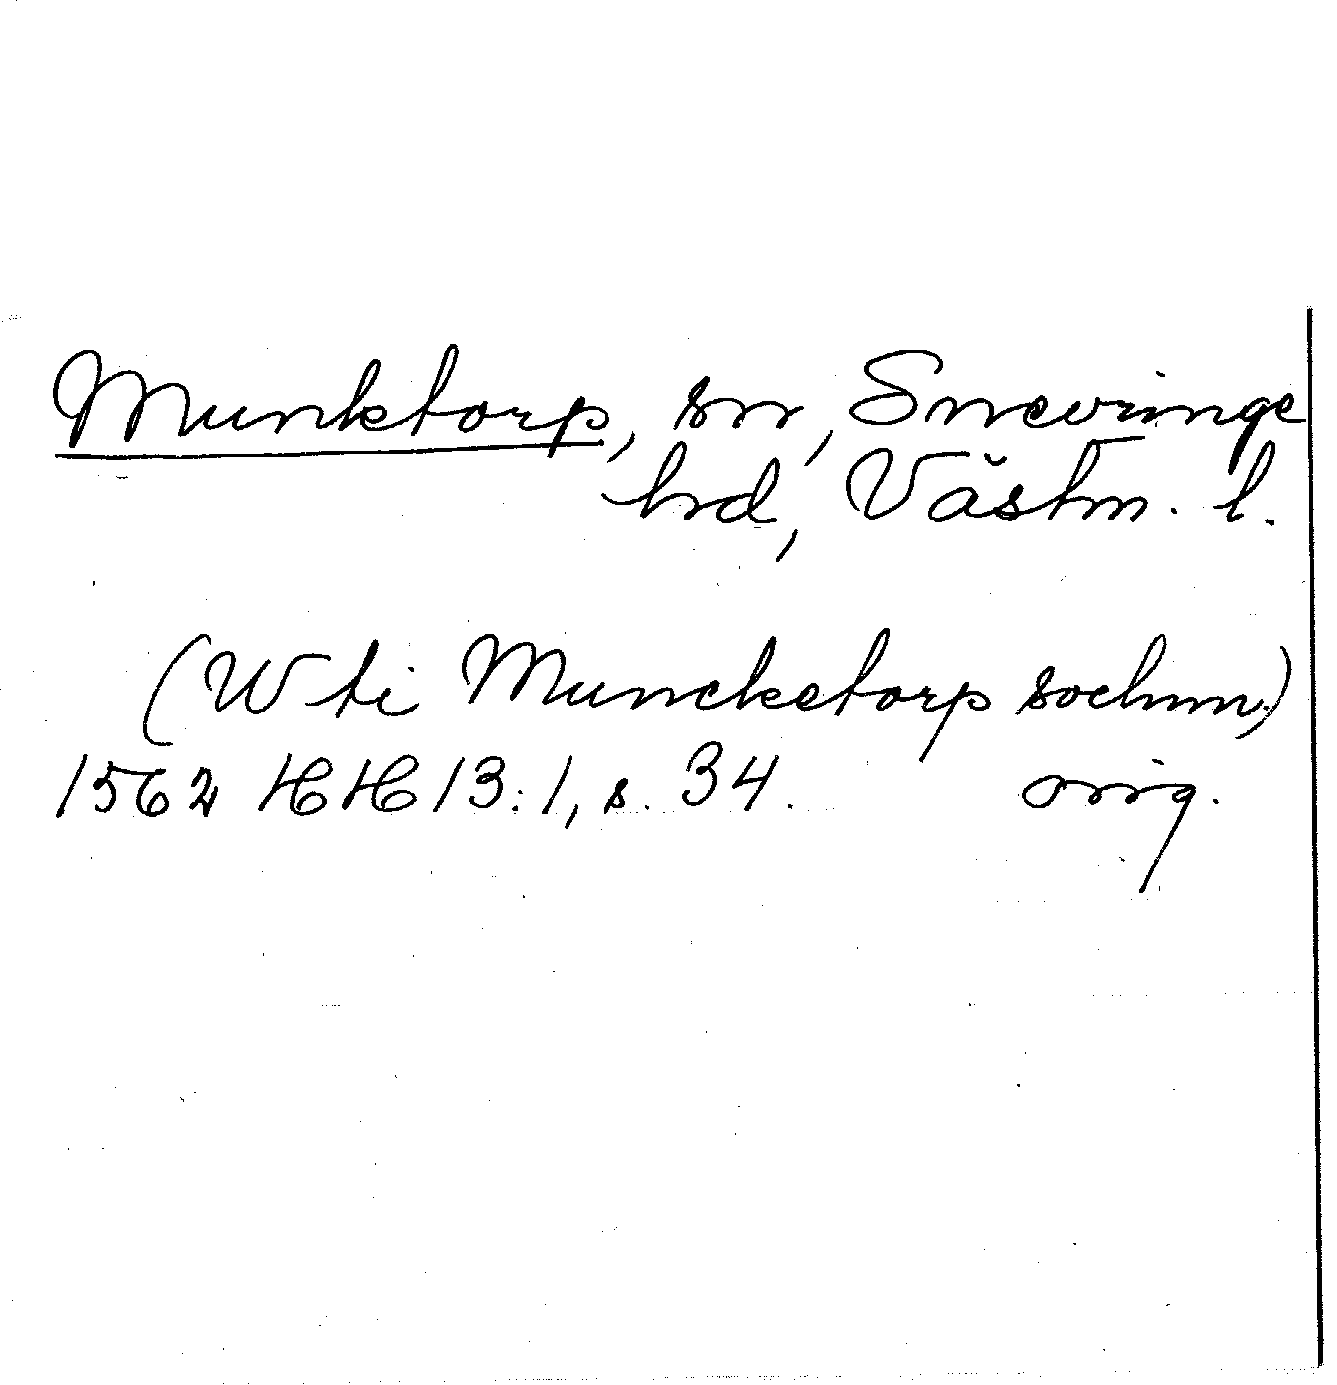 Munktorp, sn, Snevringe
hd, Västm. l.
(Wti Muncketorp sochnn)
1562 HH 13:1, s. 34. orig.